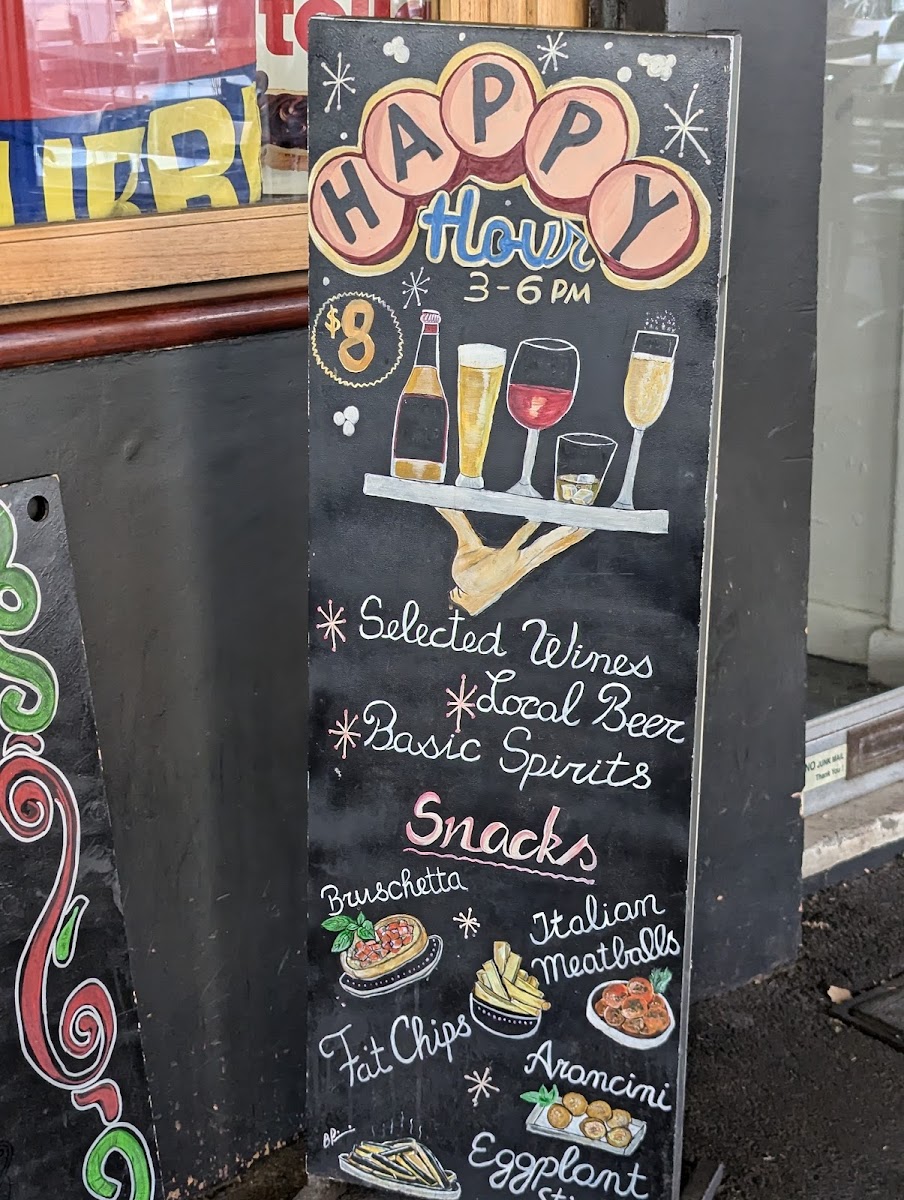 HAPPY
Hour
3-6 PM
$8
Selected Wines
Local Beer
Basic Spirits
Snacks
Bruschetta
Italian
Meatballs
Fat Chips
Arancini
Eggplant
NO JUNK MAIL
Thank You